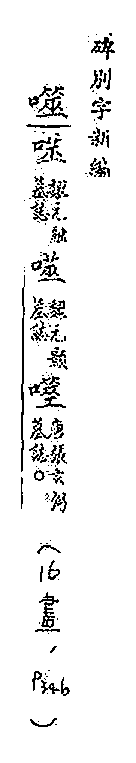 碑別字新編
噬
魏元融墓誌
魏元顥墓誌
唐張玄弼墓誌。
(16畫,P346)